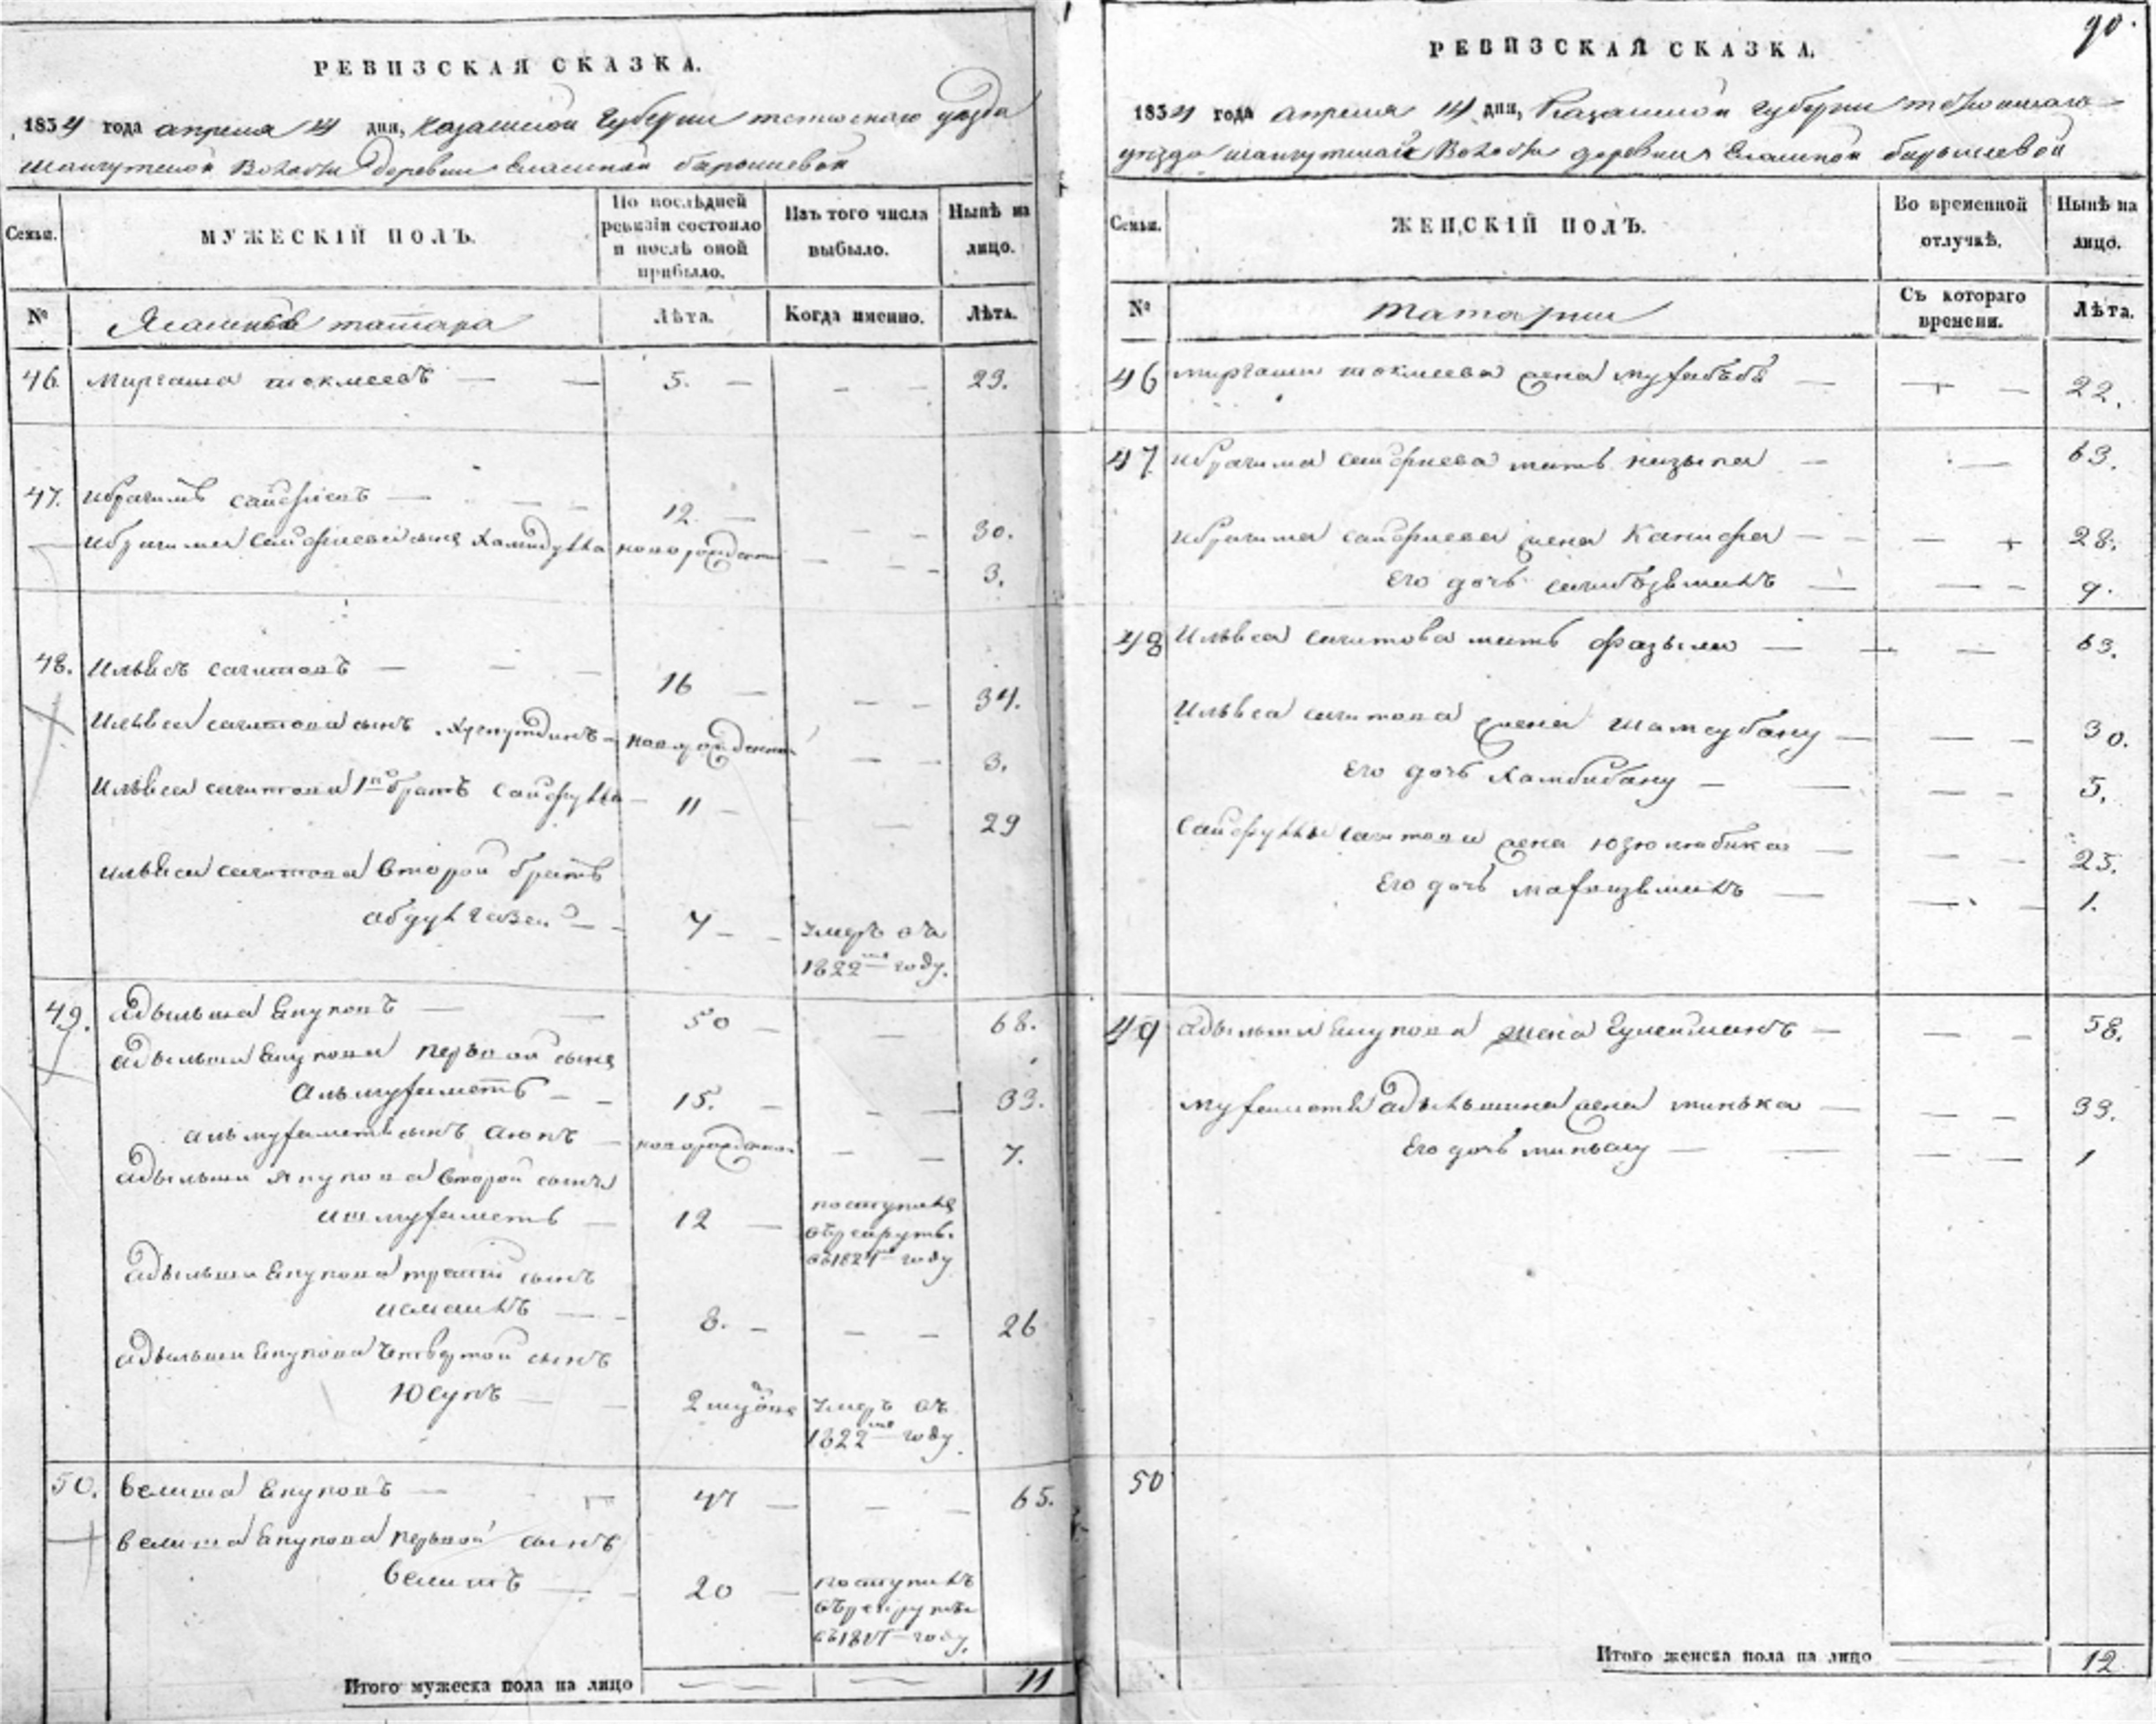 РЕВИЗСКАЯ СКАЗКА.
1834 года апреля 14 дня, Казанской Губернии тетюшского уезда
шангутской Волости Деревни барышевой
Семьи.
МУЖЕСКІЙ ПОЛЪ.
По послѣдней ревизіи состояло и послѣ оной прибыло.
Изъ того числа выбыло.
Нынѣ на лицо.
№
Ясашныя татара
Лѣта.
Когда именно.
Лѣта.
46. Миргаша — — 5. — — — 23.
47. Ибрагимъ Сайфиевъ — — — 12 — — — 30.
Ибрагима Сайфиева сынъ Хамидулла новорожденной — — 3.
48. Ильясъ сагитовъ — — — 16 — — — 34.
Ильяса сагитова сынъ — новорожденной — — 3.
Ильяса сагитова 1й братъ Сайфулла — 11 — — 29
Ильяса сагитова второй братъ
— 7 — — умеръ въ
1822м году.
49. адыльша Якуповъ — — 50 — — 68.
адыльши Якупова первой сынъ
альмухаметъ — — 15. — — — 33.
альмухаметя сынъ Аюпъ — новорожденной — — 7.
адыльши Якупова второй сынъ
ишмухаметъ — 12 — поступилъ
въ рекруты
въ 1824м году
адыльши Якупова третей сынъ
исмаилъ — — 8. — — — 26
адыльши Якупова четвертой сынъ
Юсупъ — — 2 умеръ въ
1822м году.
50. велиша Якуповъ — 47 — — — 65.
велиша Якупова первой сынъ
велитъ — — 20 — поступилъ
въ рекруты
въ году.
Итого мужеска пола на лицо — — 11
90.
РЕВИЗСКАЯ СКАЗКА.
1834 года апреля 14 дня, Казанской Губернии тетюшского
уезда шангутской Волости деревни барышевой
Семьи.
ЖЕНСКІЙ ПОЛЪ.
Во временной отлучкѣ.
Нынѣ на лицо.
№
татарки
Съ котораго времени.
Лѣта.
46 миргаши жена — — — 22.
47 ибрагима сайфиева мать — — 63.
ибрагима сайфиева жена Канифа — — — 28.
Его дочь — — — 9.
48 Ильяса сагитова мать фазыля — — — 63.
Ильяса сагитова жена шамсубану — — — 30.
Его дочь Хамбибану — — — — 5.
Сайфуллы сагитова жена юзюкабика — — — 25.
Его дочь — — — 1.
49 адыльши Якупова жена — — — 58.
мухаметя адыльшина жена минька — — — 33.
Его дочь миньсылу — — — — 1
50
Итого женска пола на лицо — 12